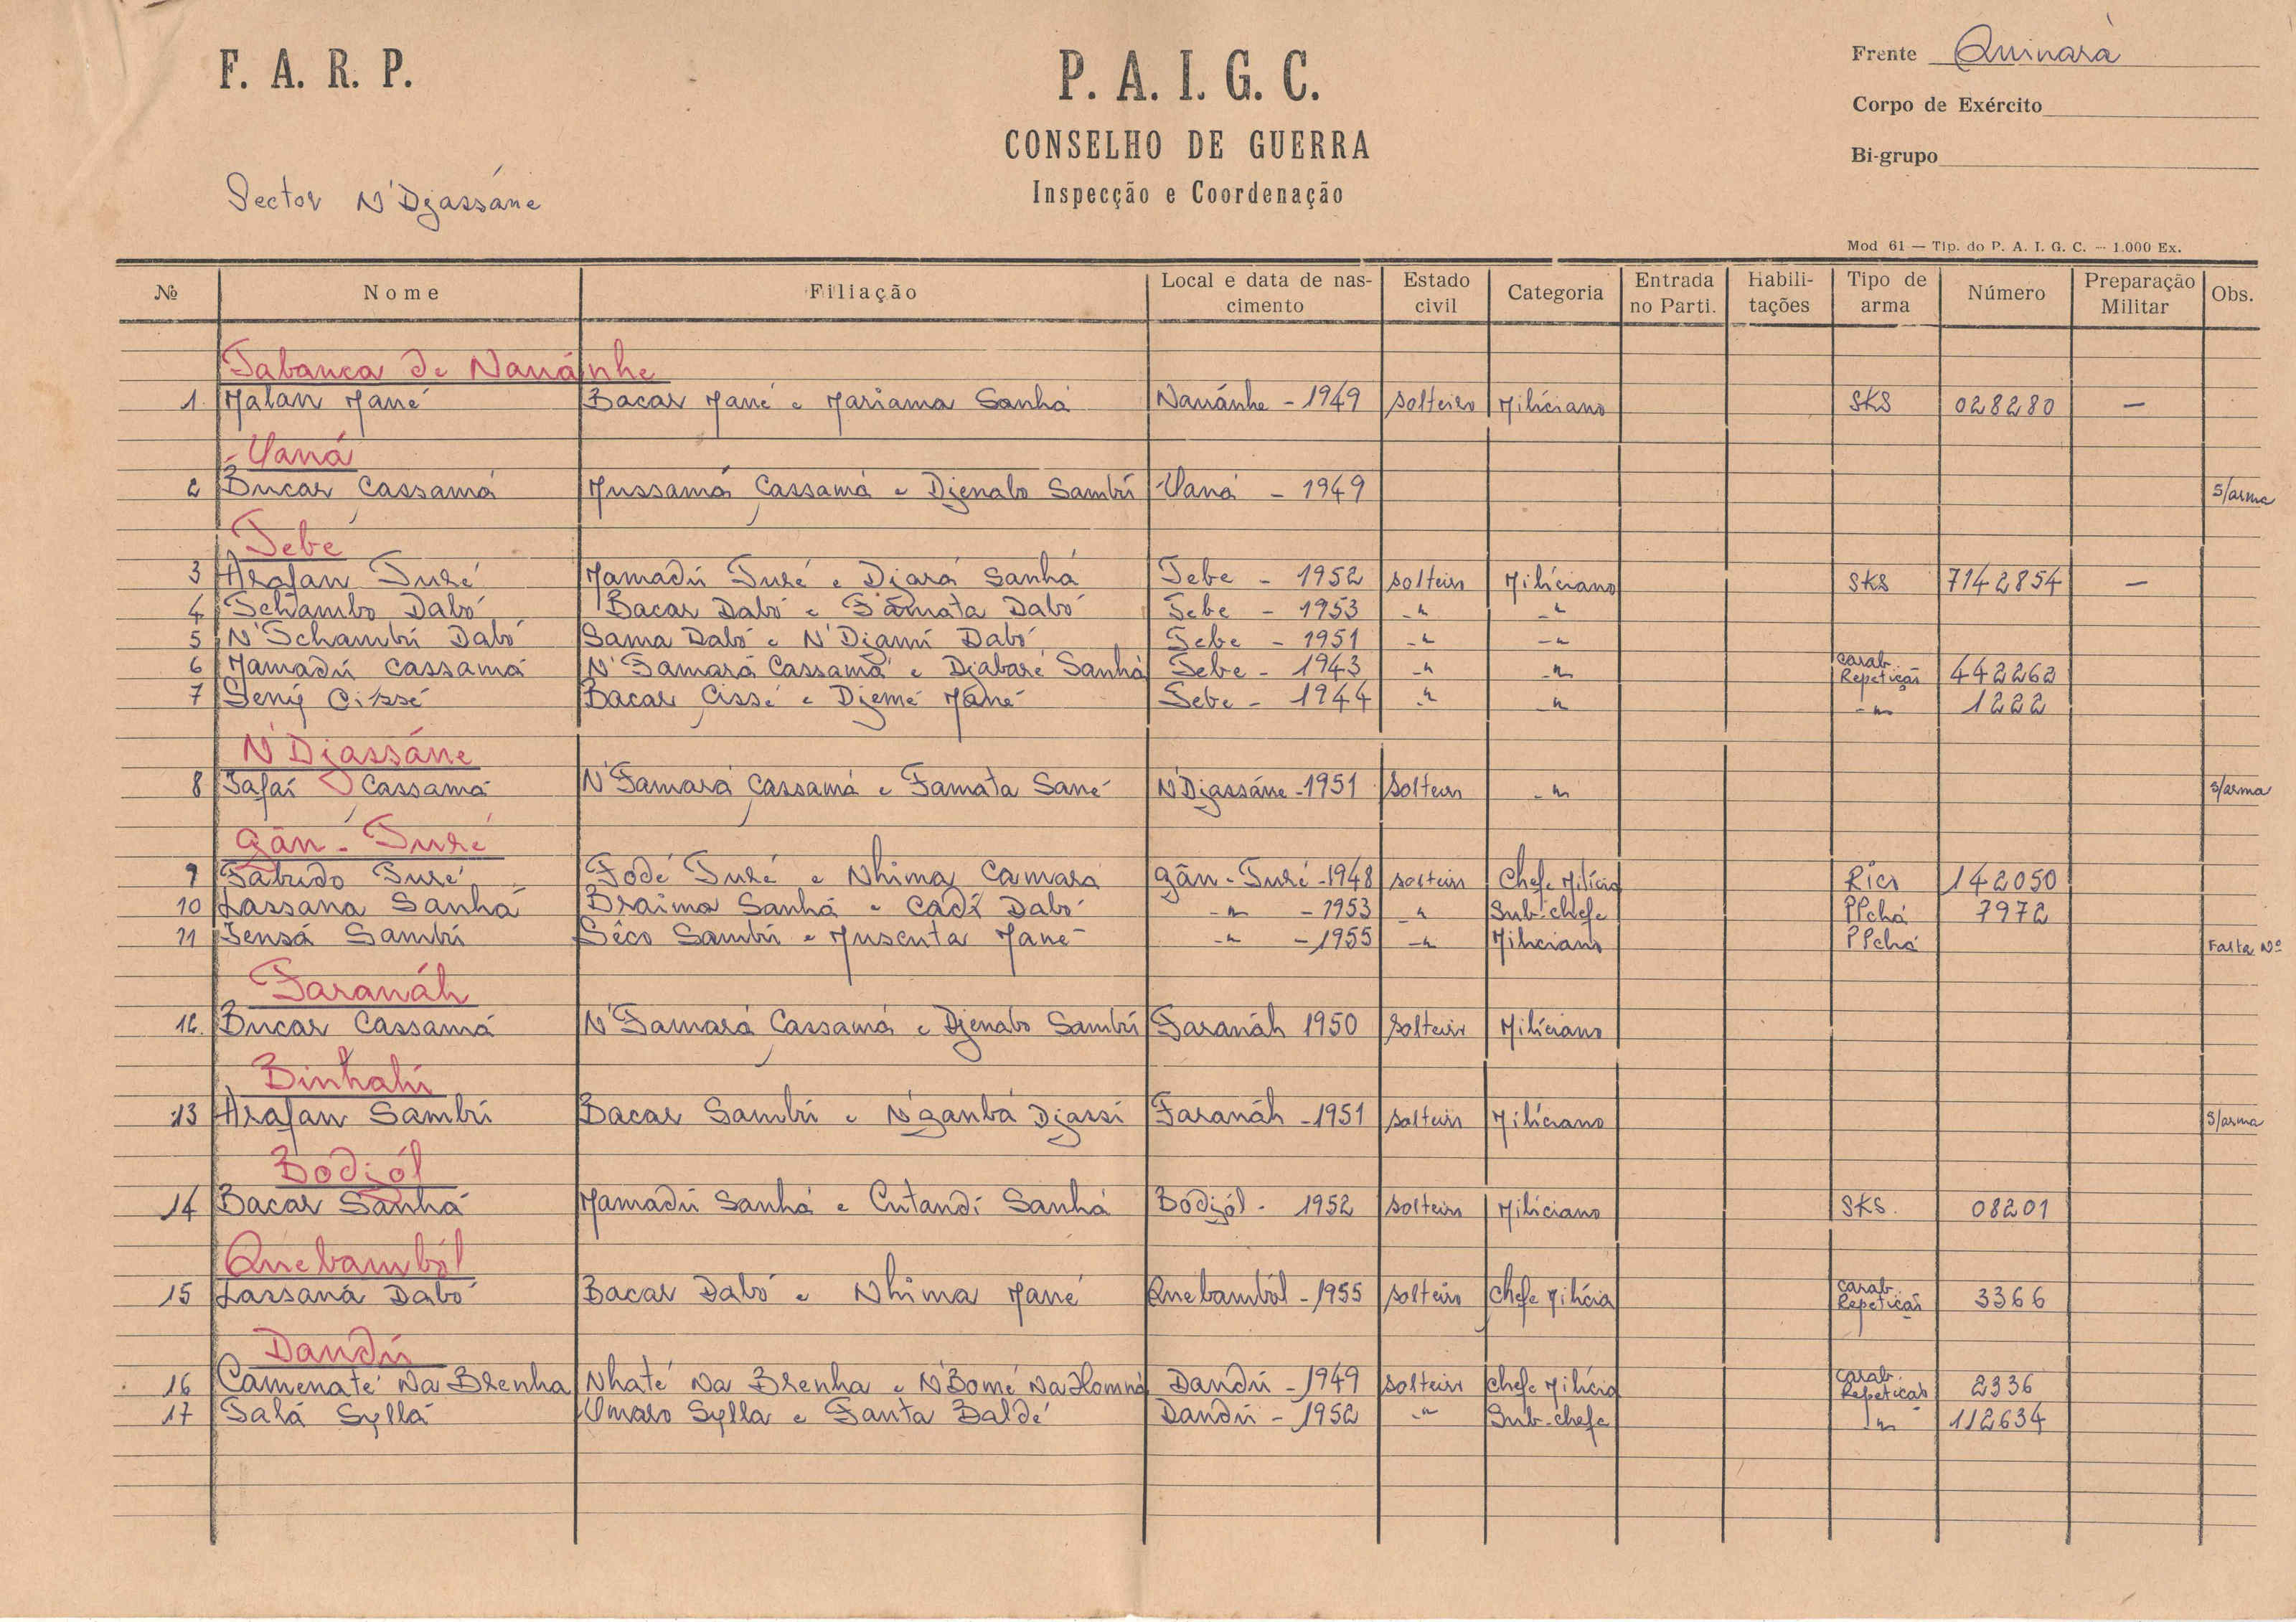 F. A. R. P.
P. A. I. G. C.
CONSELHO DE GUERRA
Inspecção e Coordenação
Frente Quinará
Corpo de Exército
Bi-grupo
Sector N'Djassáne
Mod 61 — Tip. do P. A. I. G. C. — 1.000 Ex.
№ Nome Filiação Local e data de nascimento Estado civil Categoria Entrada no Parti. Habilitações Tipo de arma Número Preparação Militar Obs.
Tabanca de Nauánhe
1. Malan Mané Bacar Mané e Mariama Sanhá Nauánhe - 1949 Solteiro Miliciano SKS 028280 —
Uaná
2 Bucar Cassamá Mussamá Cassamá e Djenabo Sambú Uaná - 1949 S/arma
Tebe
3 Arafan Turé Mamadú Turé e Djará Sanhá Tebe - 1952 Solteiro Miliciano SKS 7142854 —
4 Tchambo Dabó Bacar Dabó e Fámata Dabó Tebe - 1953 -"- -"-
5 N'Tchambú Dabó Sama Dabó e N'Diamí Dabó Tebe - 1951 -"- -"-
6 Mamadú Cassamá N'Famará Cassamá e Djabaré Sanhá Tebe - 1943 -"- -"- Carab. Repetição 442262
7 Seny Cissé Bacar Cissé e Djemé Mané Tebe - 1944 -"- -"- -"- 1222
N'Djassáne
8 Fafaí Cassamá N'Famará Cassamá e Famata Sané N'Djassáne - 1951 Solteiro -"- S/arma
Gân-Turé
9 Fabudo Turé Fodé Turé e Nhima Camará Gân-Turé - 1948 Solteiro Chefe Milícia Rico 142050
10 Lassana Sanhá Braima Sanhá e Cadí Dabó -"- - 1953 -"- Sub-chefe PPchá 7972
11 Sensá Sambú Sêco Sambú e Muscuta Mané -"- - 1955 -"- Miliciano PPchá Falta Nº
Faranáh
12. Bucar Cassamá N'Famará Cassamá e Djenabo Sambú Faranáh 1950 Solteiro Miliciano
Binhalú
13 Arafan Sambú Bacar Sambú e N'ganbá Djassi Faranáh - 1951 Solteiro Miliciano S/arma
Bodjól
14 Bacar Sanhá Mamadú Sanhá e Cutandí Sanhá Bodjól - 1952 Solteiro Miliciano SKS. 08201
Quebamból
15 Lassaná Dabó Bacar Dabó e Nhima Mané Quebamból - 1955 Solteiro Chefe Milícia Carab. Repetição 3366
Dandú
16 Camenaté Na Brenha Nhaté Na Brenha e N'Bomé Na Homna Dandú - 1949 Solteiro Chefe Milícia Carab. Repetição 2336
17 Salá Syllá Umaro Sylla e Fanta Baldé Dandú - 1952 -"- Sub-chefe -"- 112634